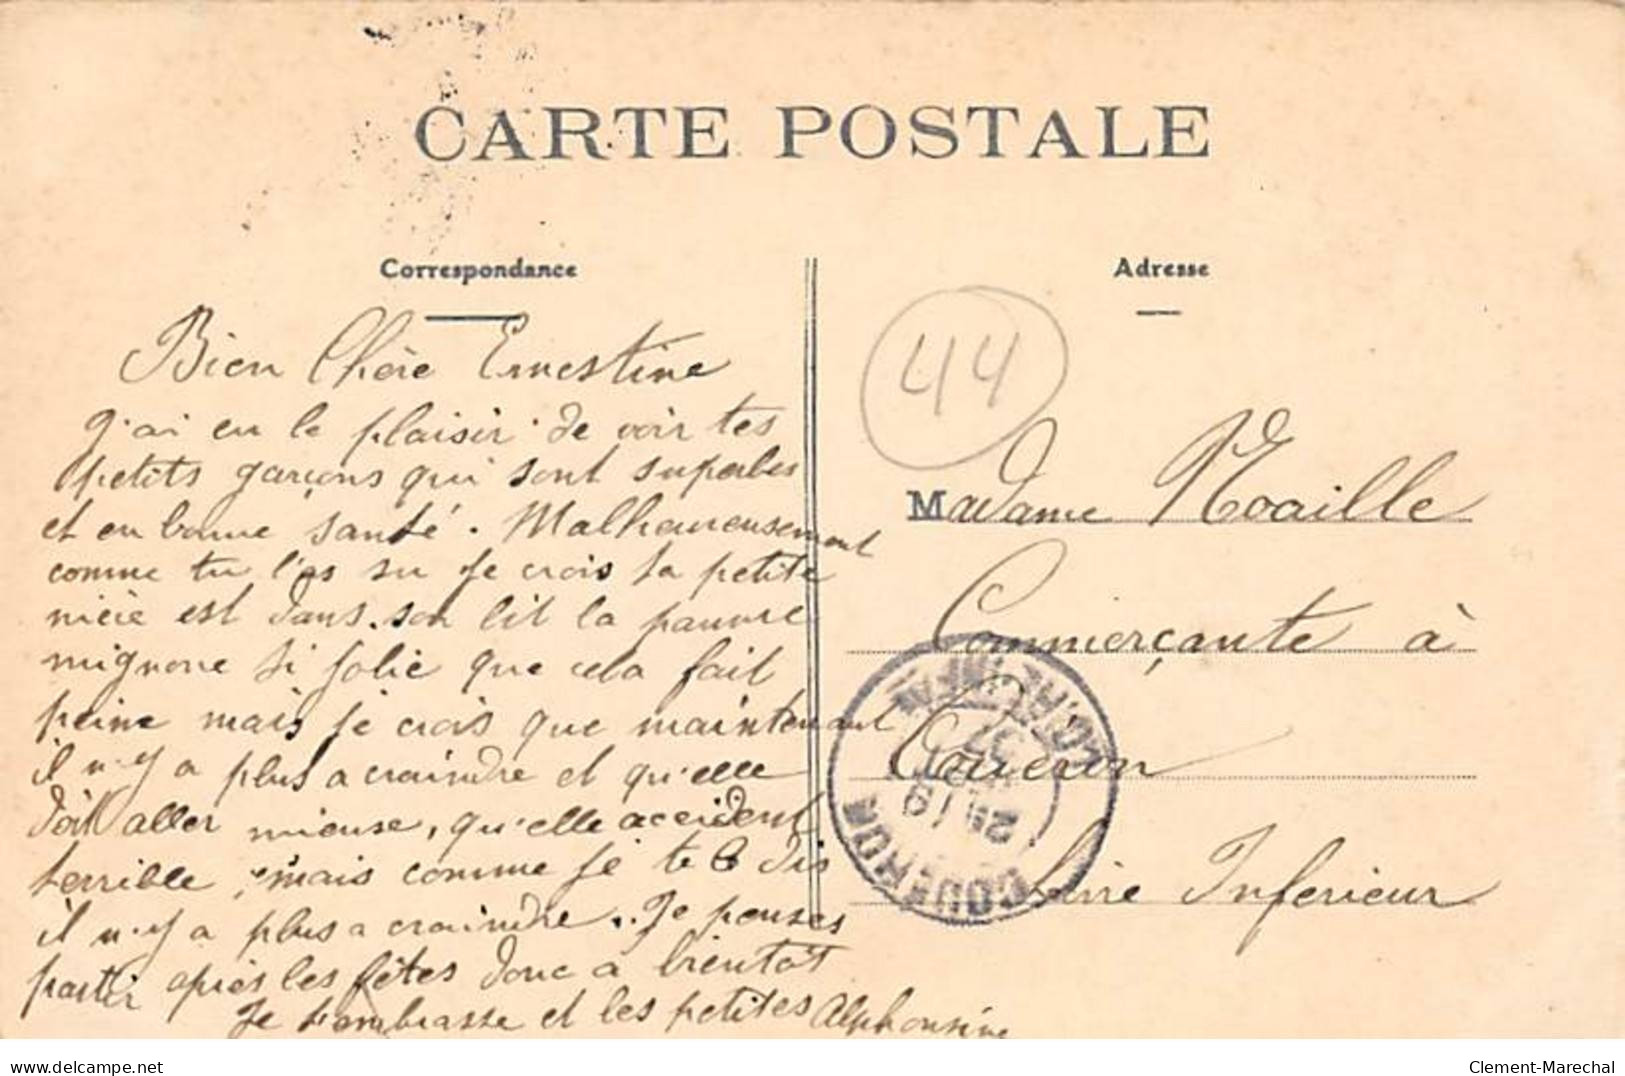 CARTE POSTALE
Correspondance
Adresse
44
Bien Chère Ernestine
J'ai eu le plaisir de voir tes
petits garçons qui sont superbes
et en bonne santé. Malheureusement
comme tu l'as su je crois ta petite
nièce est dans son lit la pauvre
mignone si jolie que cela fait
peine mais je crois que maintenant
il n'y a plus a craindre et qu'elle
doit aller mieuse, qu'elle accident
terrible, mais comme je te le dis
il n'y a plus a craindre.. Je penses
partir après les fêtes donc a bientôt
Je t'embrasse et les petites Alphonsine
Madame Noaille
Commerçante à
Couëron
Loire Inferieur
COUERON
LOIRE INFRE
Clement-Marechal
www.delcampe.net